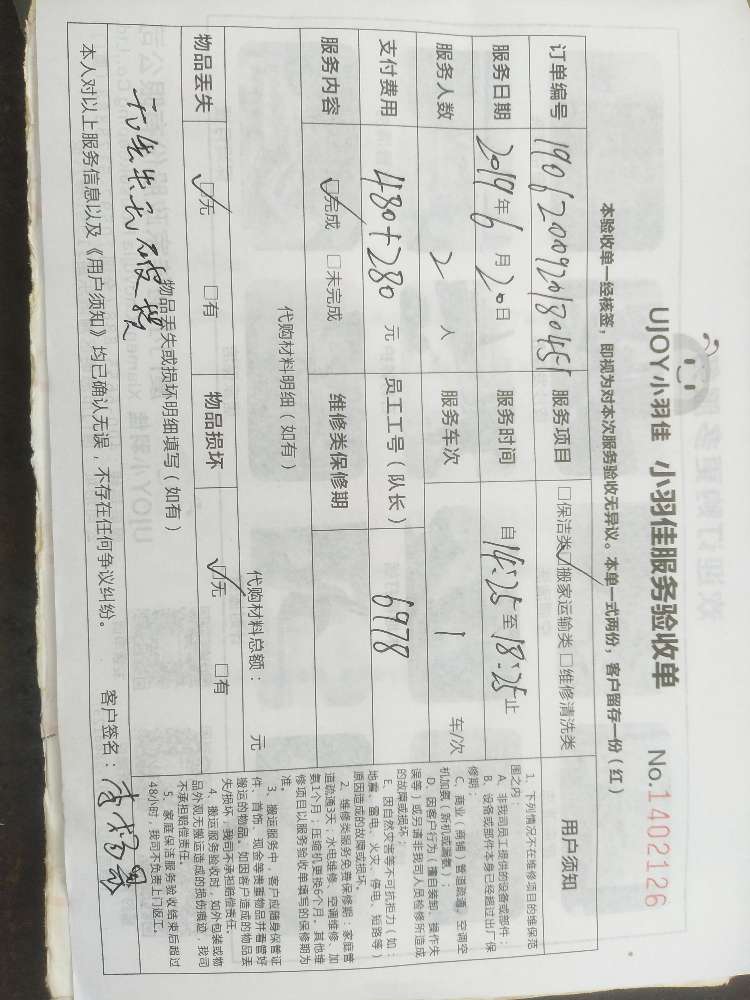 UJOY小羽佳 小羽佳服务验收单 No.1402126
本验收单一经核签，即视为对本次服务验收无异议。本单一式两份，客户留存一份（红）
订单编号 1906200920180451 服务项目 □保洁类 ☑搬家运输类 □维修清洗类
服务日期 2019年6月20日 服务时间 自14:25至18:25止
服务人数 2 人 服务车次 1 车/次
支付费用 480+280 元 员工工号（队长） 6978
服务内容 ☑完成 □未完成 维修类保修期
代购材料明细（如有）
代购材料总额： 元
物品丢失 ☑无 □有 物品损坏 ☑无 □有
物品丢失或损坏明细填写（如有）
无丢失无破损
本人对以上服务信息以及《用户须知》均已确认无误，不存在任何争议纠纷。 客户签名：
用户须知
1、下列情况不在维修项目的维保范
围之内：
A、非我司员工提供的设备或部件；
B、设备或部件本身已经超过出厂保
修期；
C、商业（商铺）管道疏通，空调空
机加氨（拆机或漏氨）；
D、因客户行为（擅自装卸、操作失
误等）或另请非我司人员检修所造成
的故障或损坏；
E、因自然灾害等不可抗拒力（如：
地震、雷电、火灾、停电、短路等）
原因造成的故障或损坏。
2、维修类服务免费保修期：家庭管
道疏通3天；水电维修、空调维修、加
氨1个月；压缩机更换6个月。其他维
修项目以服务验收单填写的保修期为
准。
3、搬运服务中，客户应随身保管证
件、首饰、现金等贵重物品并看管好
搬运的物品。如因客户造成的物品丢
失/损坏，我司不承担赔偿责任。
4、搬运服务验收时，如外包装或物
品外观无搬运造成的损伤痕迹，我司
不承担赔偿责任。
5、家庭保洁服务验收结束后超过
48小时，我司不负责上门返工。